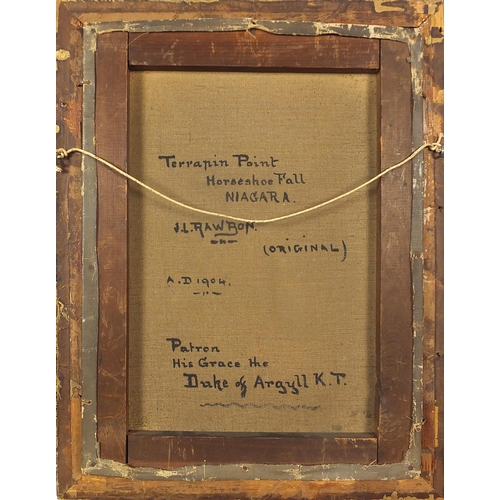 Terrapin Point
Horseshoe Fall
NIAGARA.
J.L. RAWBON.
(ORIGINAL)
A.D 1904.
Patron
His Grace the
Duke of Argyll K.T.